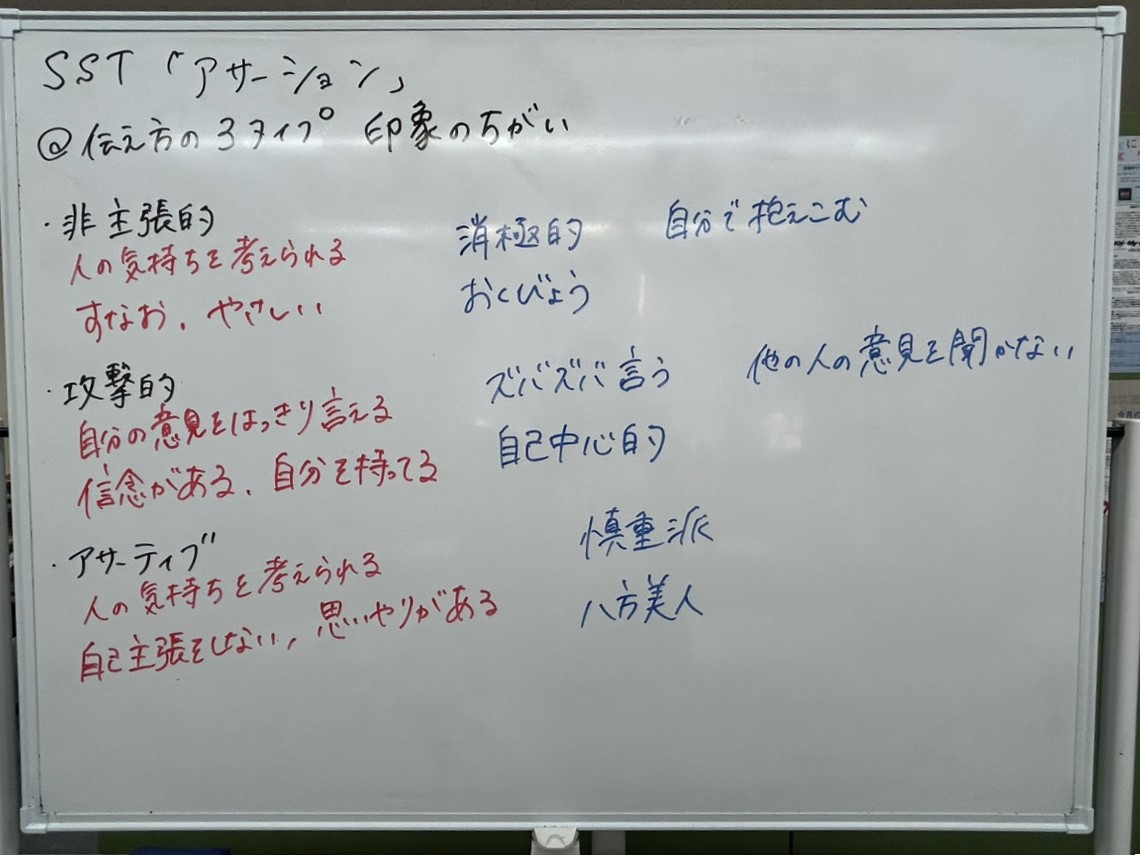 SST「アサーション」
@伝え方の3タイプ 印象のちがい
・非主張的
人の気持ちを考えられる
すなお、やさしい
消極的 自分で抱えこむ
おくびょう
・攻撃的
自分の意見をはっきり言える
信念がある、自分を持ってる
ズバズバ言う 他の人の意見を聞かない
自己中心的
・アサーティブ
人の気持ちを考えられる
自己主張をしない、思いやりがある
慎重派
八方美人